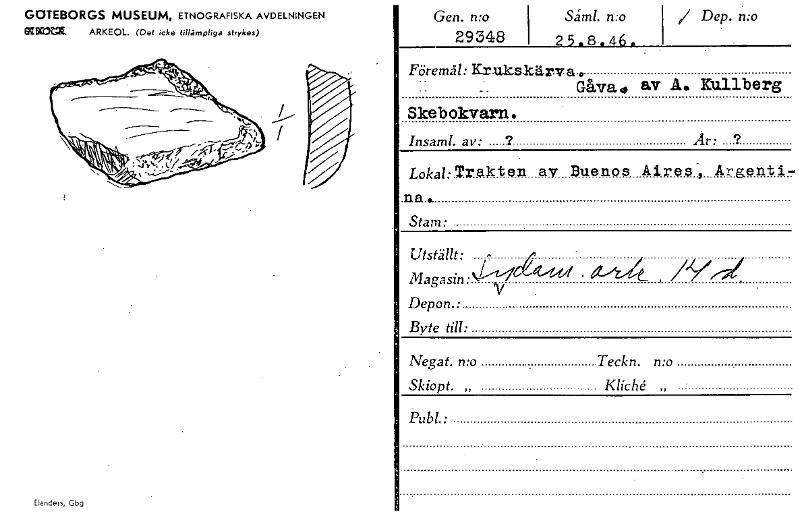 GÖTEBORGS MUSEUM, ETNOGRAFISKA AVDELNINGEN
ARKEOL. (Det icke tillämpliga strykes)
1/1
Elanders, Gbg
Gen. n:o Saml. n:o / Dep. n:o
29348 25.8.46.
Föremål: Krukskärva.
Gåva. av A. Kullberg
Skebokvarn.
Insaml. av: ? År: ?
Lokal: Trakten av Buenos Aires, Argenti-
na.
Stam:
Utställt:
Magasin: Sydam. ark. 14 d.
Depon.:
Byte till:
Negat. n:o Teckn. n:o
Skiopt. „ Kliché „
Publ.: